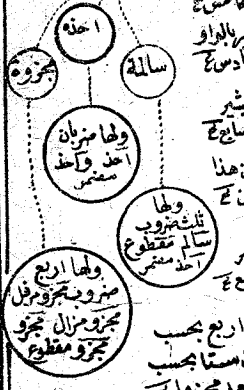 احذه
سالمة
مجزوة
ولها ضربان
احذ واحذ
مضمر
ولها
ثلث ضروب
سالم مقطوع
احذ مضمر
ولها اربع
ضروب مجزو مرفل
مجزو مزال مجزو
مجزو مقطوع
هذا
اربع بحسب
وستا بحسب